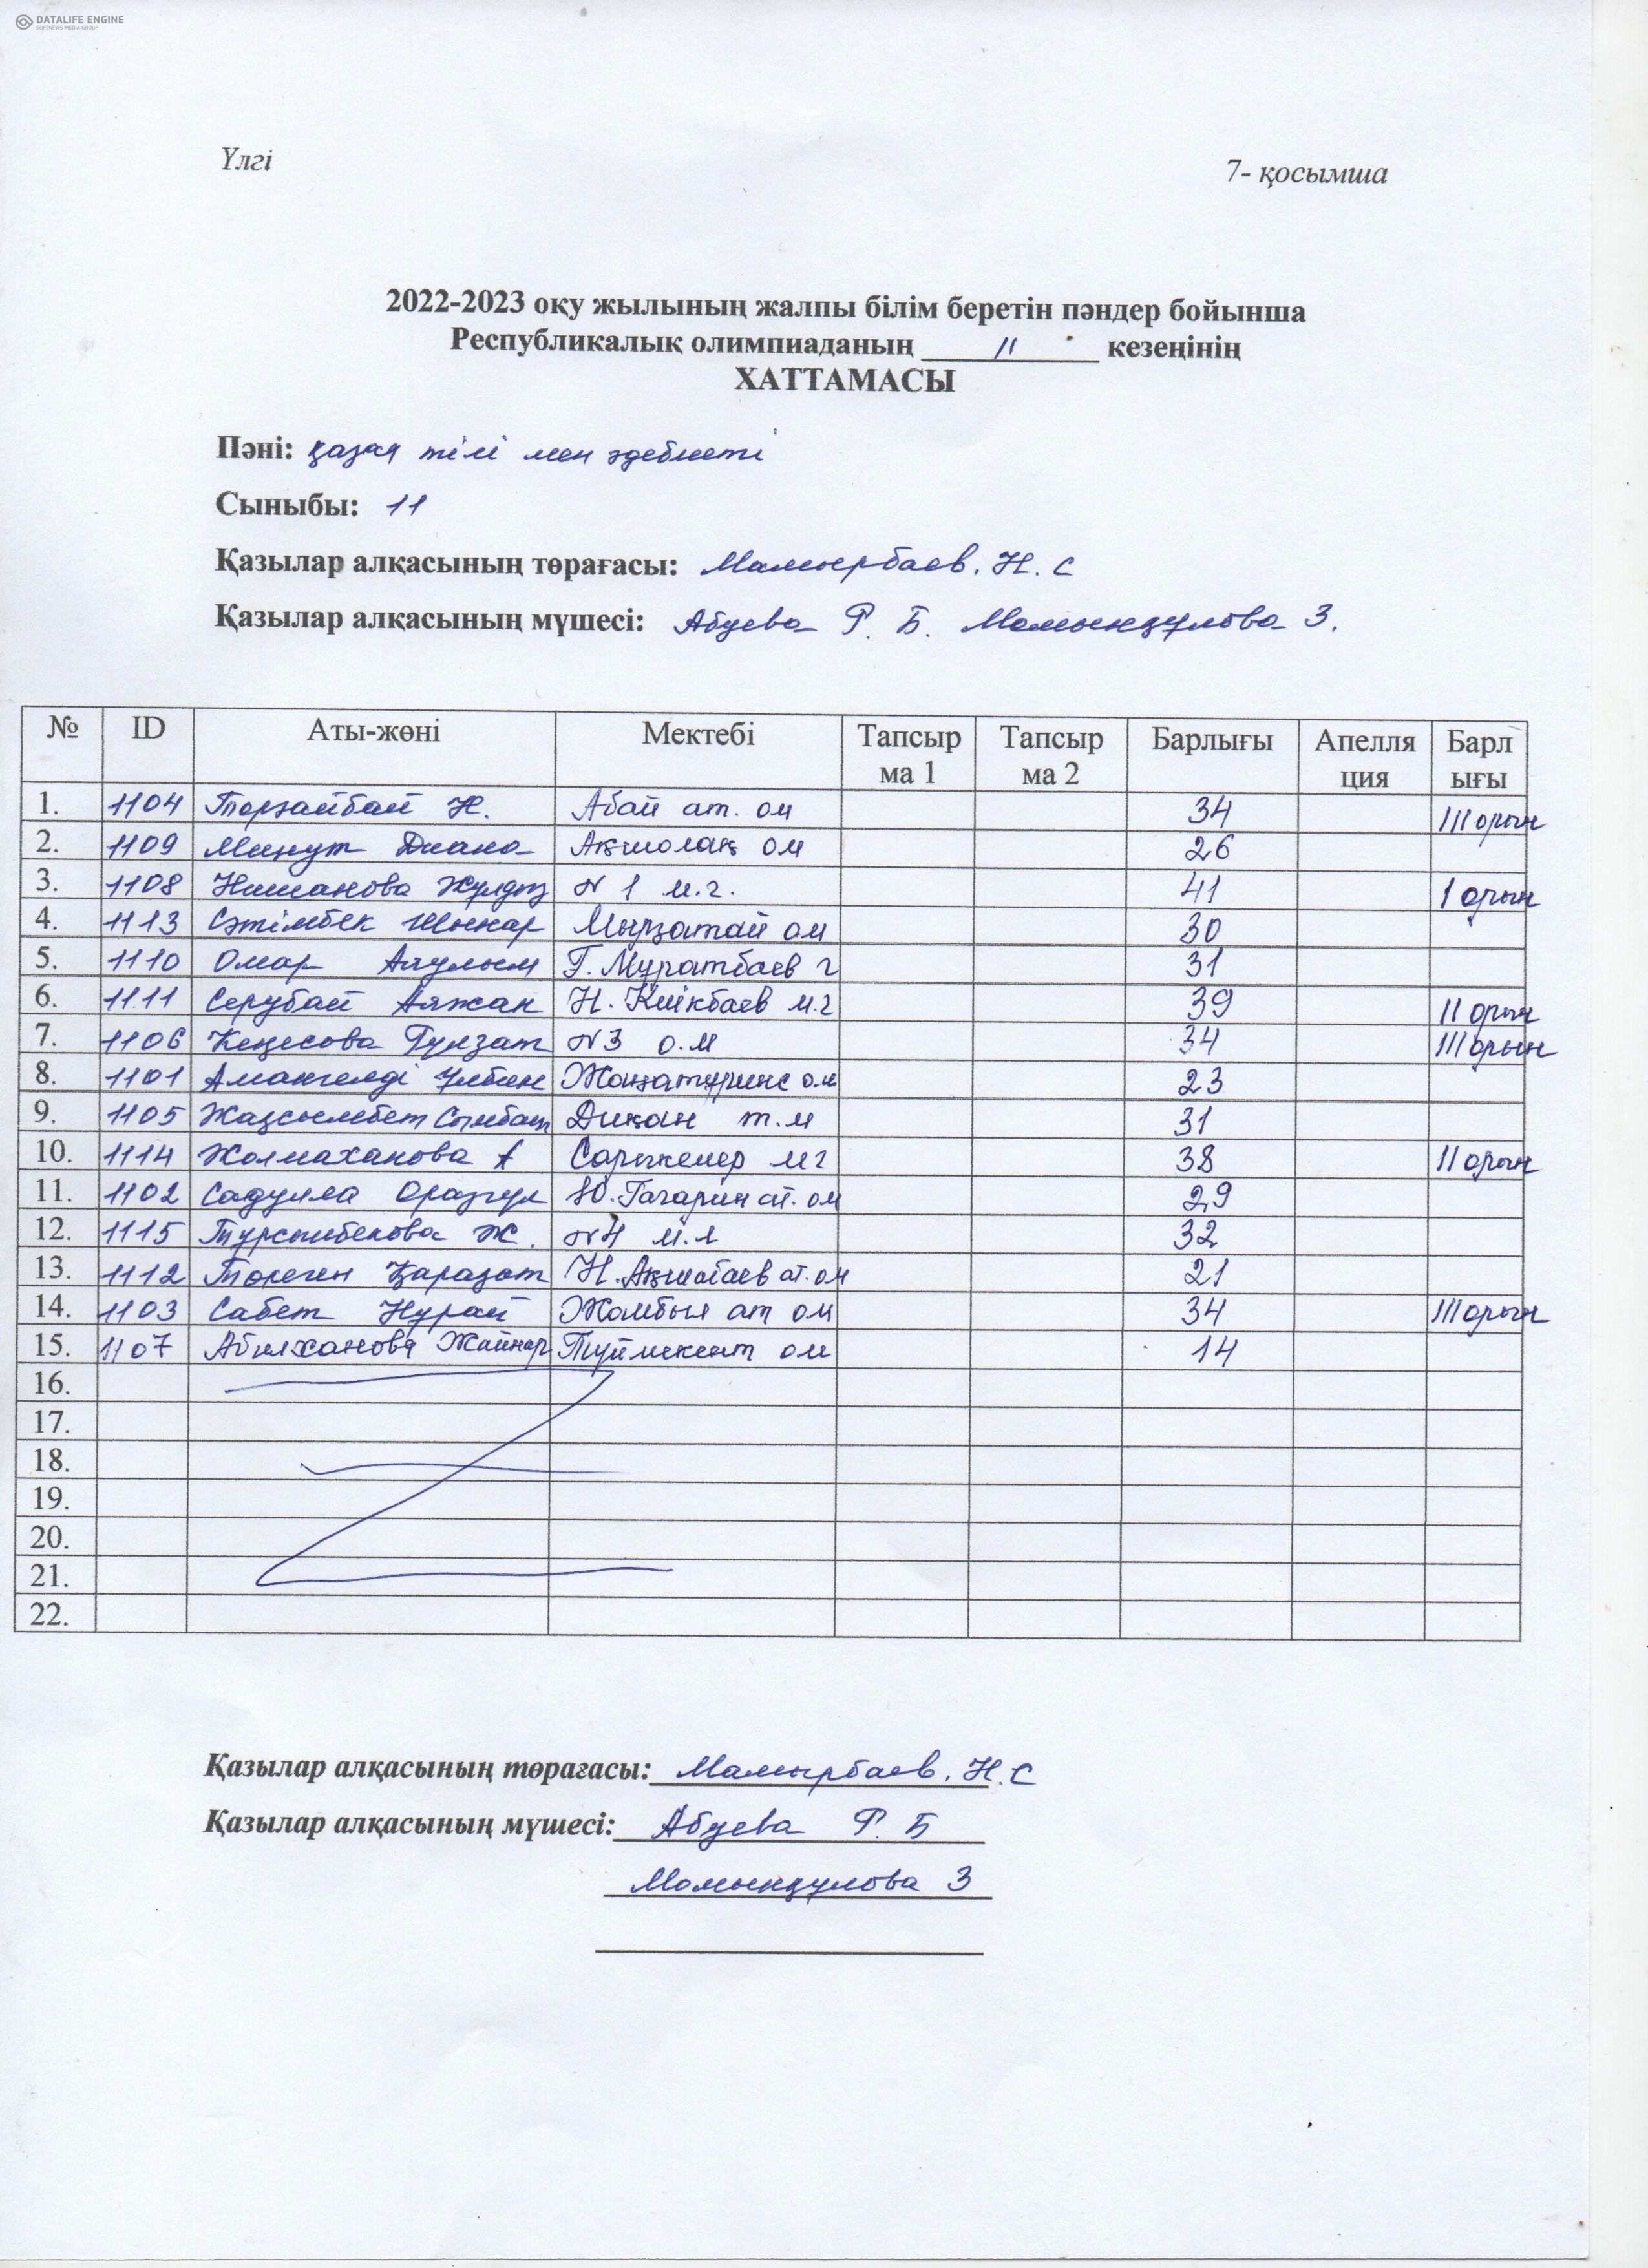 DATALIFE ENGINE
SOFTNEWS MEDIA GROUP
Үлгі
7- қосымша
2022-2023 оқу жылының жалпы білім беретін пәндер бойынша
Республикалық олимпиаданың II кезеңінің
ХАТТАМАСЫ
Пәні: қазақ тілі мен әдебиеті
Сыныбы: 11
Қазылар алқасының төрағасы: Мамырбаев. Н. С
Қазылар алқасының мүшесі: Абуева Р. Б. Момынқулова З.
№ ID Аты-жөні Мектебі Тапсыр ма 1 Тапсыр ма 2 Барлығы Апелля ция Барл ығы
1. 1104 Торғайбай Н. Абай ат. ом 34 III орын
2. 1109 Диана Ақшолақ ом 26
3. 1108 Нишанова Жұлдыз N 1 м.г. 41 I орын
4. 1113 Сәтімбек Шынар Мырзатай ом 30
5. 1110 Омар Аяулым Г. Мұратбаев г 31
6. 1111 Серубай Аяжан Н. Киікбаев м.г 39 II орын
7. 1106 Кеңесова Гулзат N3 о.м 34 III орын
8. 1101 Амангелді Улбике ом 23
9. 1105 Жақсылбет Сымбат Диқан т.м 31
10. 1114 Холмаханова А Сарыкемер мг 38 II орын
11. 1102 Садулла Оразгул Ю. Гагарин ат. ом 29
12. 1115 Турсынбекова Ж. N4 м.л 32
13. 1112 Төлеген Қарақат Н. ат. ом 21
14. 1103 Сабет Нұрай Жамбыл ат ом 34 III орын
15. 1107 Абилханова Жайнар Түймекент ом 14
16.
17.
18.
19.
20.
21.
22.
Қазылар алқасының төрағасы: Мамырбаев. Н. С
Қазылар алқасының мүшесі: Абуева Р. Б
Момынқулова З